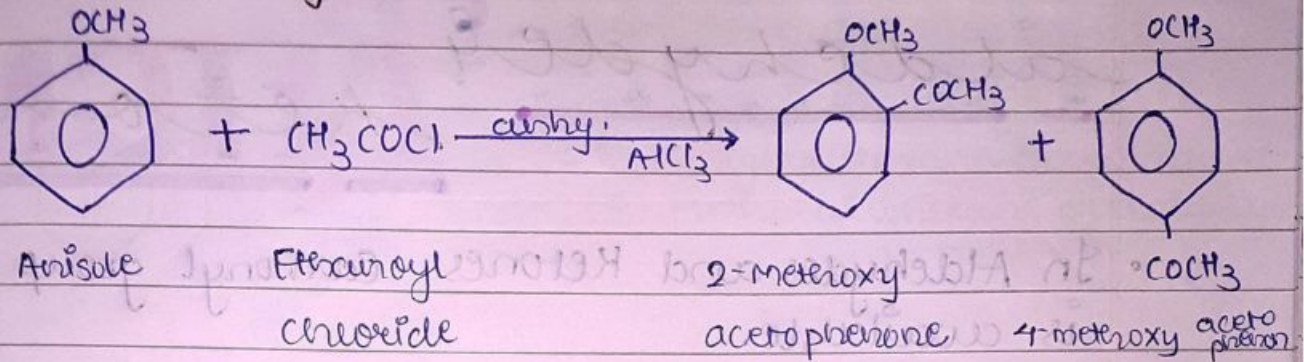 OCH3 OCH3 OCH3
COCH3
+ CH3COCl anhy. AlCl3 +
COCH3
Anisole Ethanoyl chloride
2-methoxy acetophenone
4-methoxy acetophenon